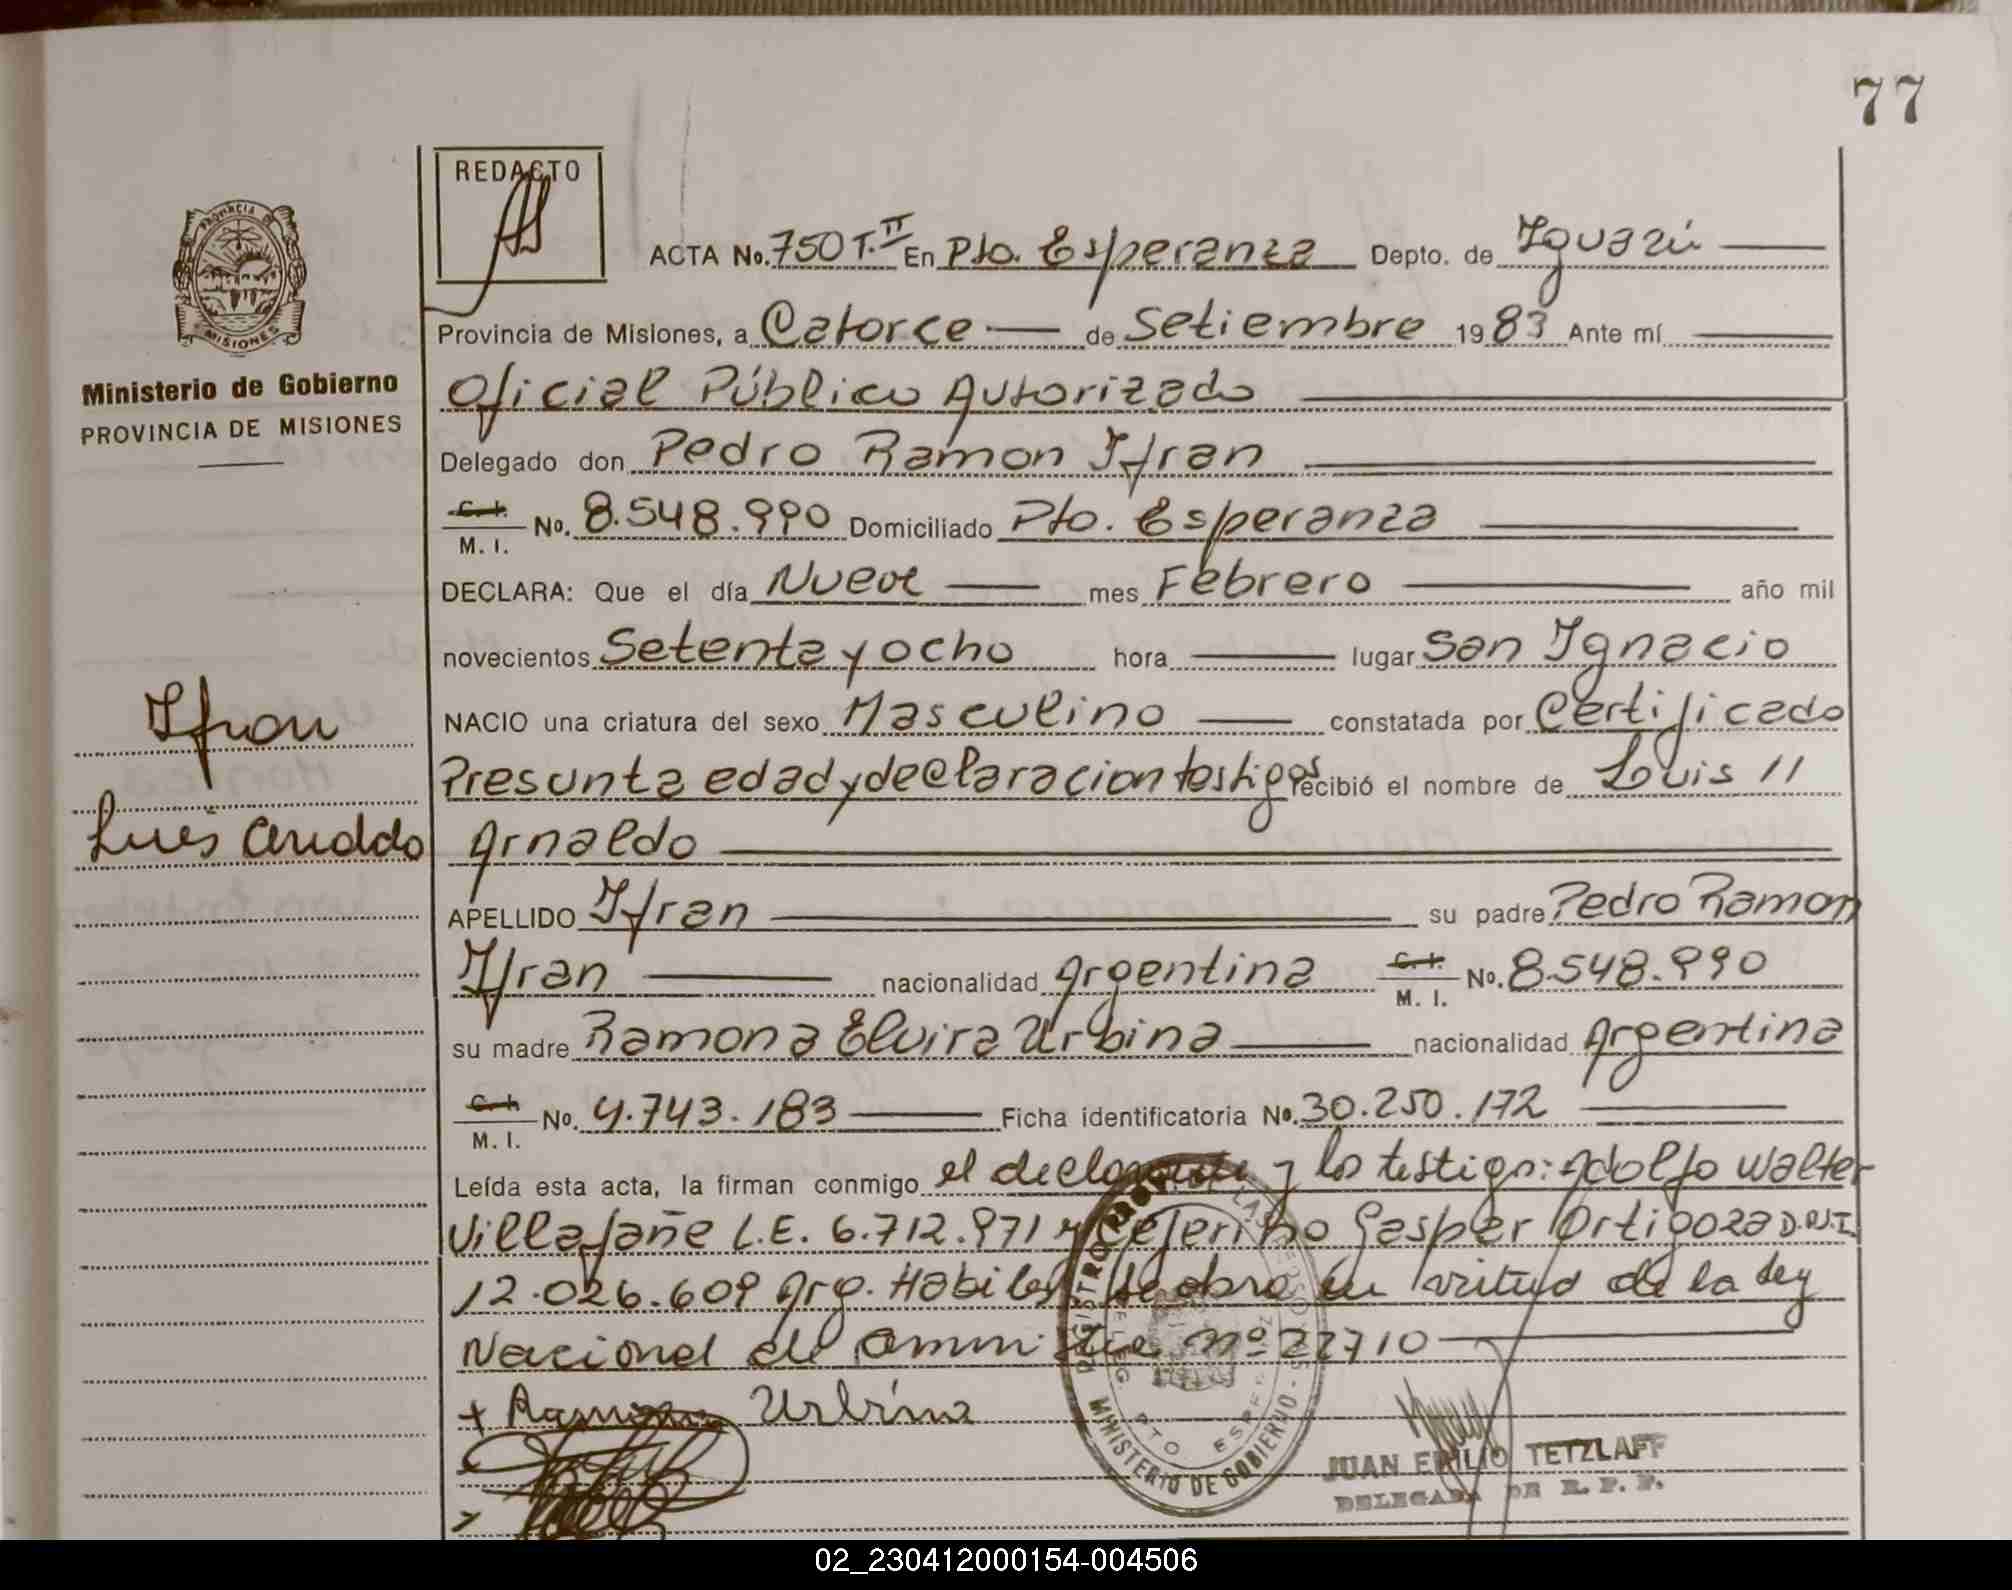 77
REDACTO
ACTA No. 750 T. II En Pto. Esperanza Depto. de Iguazú
PROVINCIA DE
MISIONES
Provincia de Misiones, a Catorce de Setiembre 1983 Ante mí
Ministerio de Gobierno
PROVINCIA DE MISIONES
Oficial Público Autorizado
Delegado don Pedro Ramon Ifran
C. I.
M. I. No. 8.548.990 Domiciliado Pto. Esperanza
DECLARA: Que el día Nueve mes Febrero año mil
novecientos Setenta y ocho hora lugar San Ignacio
Ifran
NACIO una criatura del sexo Masculino constatada por Certificado
Presunta edad y declaracion testigos recibió el nombre de Luis //
Luis Arnaldo
Arnaldo
APELLIDO Ifran su padre Pedro Ramon
Ifran nacionalidad Argentina C. I. M. I. No. 8.548.990
su madre Ramona Elvira Urbina nacionalidad Argentina
C. I.
M. I. No. 4.743.183 Ficha identificatoria No. 30.250.172
Leída esta acta, la firman conmigo el declarante y los testigos: Adolfo Walter
Villafañe L.E. 6.712.971 y Ceferino Gasper Ortigoza D.N.I.
12.026.609 Arg. Habiles se obro en virtud de la Ley
Nacional de Amnistia nº 22710
+ Ramona Urbina
MINISTERIO DE GOBIERNO
PTO ESPERANZA
JUAN EMILIO TETZLAFF
DELEGADO DE R. P. P.
02_230412000154-004506